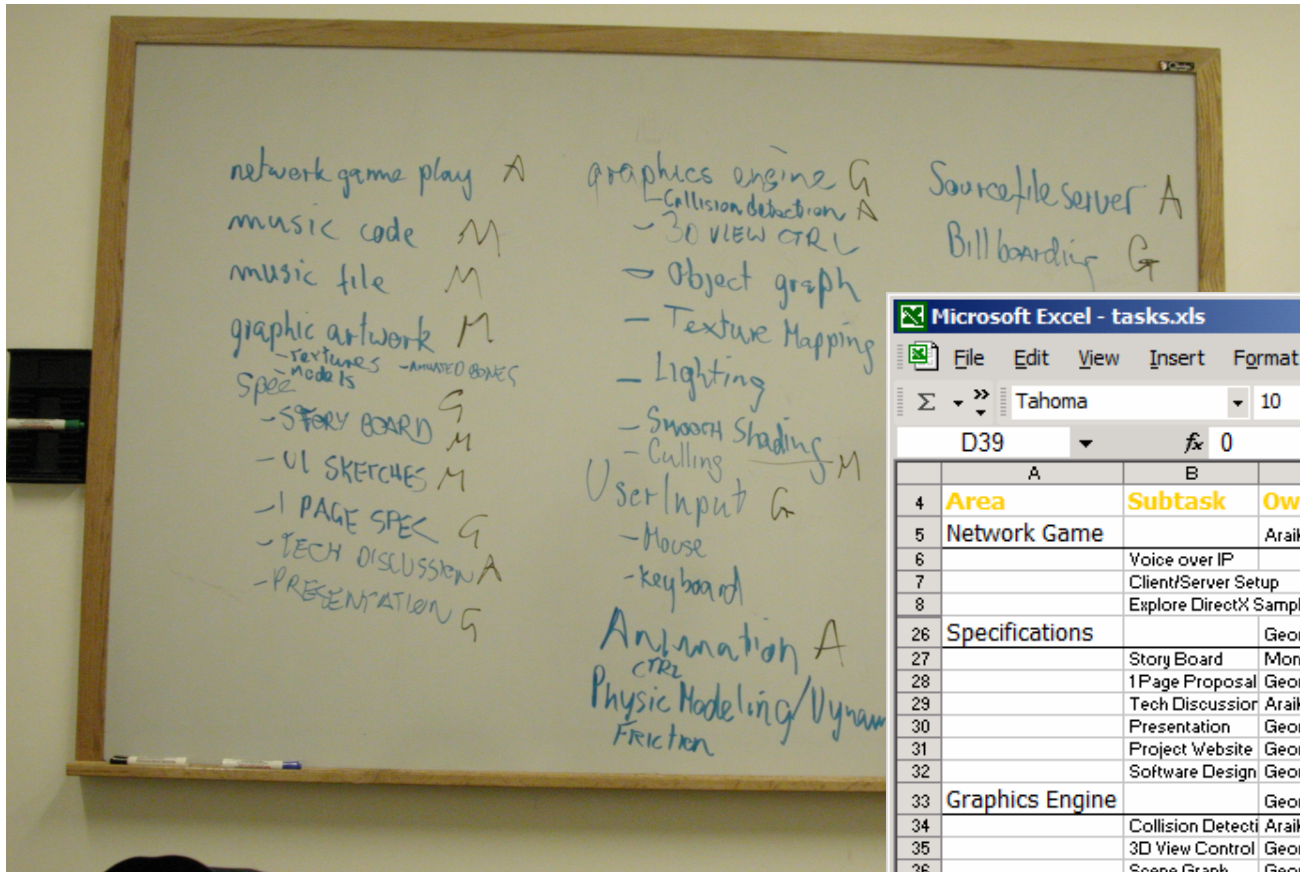 network game play A
music code M
music file M
graphic artwork M
- Textures - ANIMATED BONES
- Models
Spec G
- STORY BOARD M
- UI SKETCHES M
- 1 PAGE SPEC G
- TECH DISCUSSION A
- PRESENTATION G
graphics engine G
- Collision detection A
- 3D VIEW CTRL
- Object graph
- Texture Mapping
- Lighting
- Smooth Shading
- Culling M
User Input G
- Mouse
- Keyboard
Animation A
CTRL
Physic Modeling/Dynam
FRICTION
Sourcefile server A
Billboarding G
Microsoft Excel - tasks.xls
File Edit View Insert Format
Σ Tahoma 10
D39 fx 0
A B
4 Area Subtask Ow
5 Network Game Araik
6 Voice over IP
7 Client/Server Setup
8 Explore DirectX Sampl
26 Specifications Geor
27 Story Board Mon
28 1 Page Proposal Geor
29 Tech Discussion Araik
30 Presentation Geor
31 Project Website Geor
32 Software Design Geor
33 Graphics Engine Geor
34 Collision Detecti Araik
35 3D View Control Geor
36 Scene Graph Geor